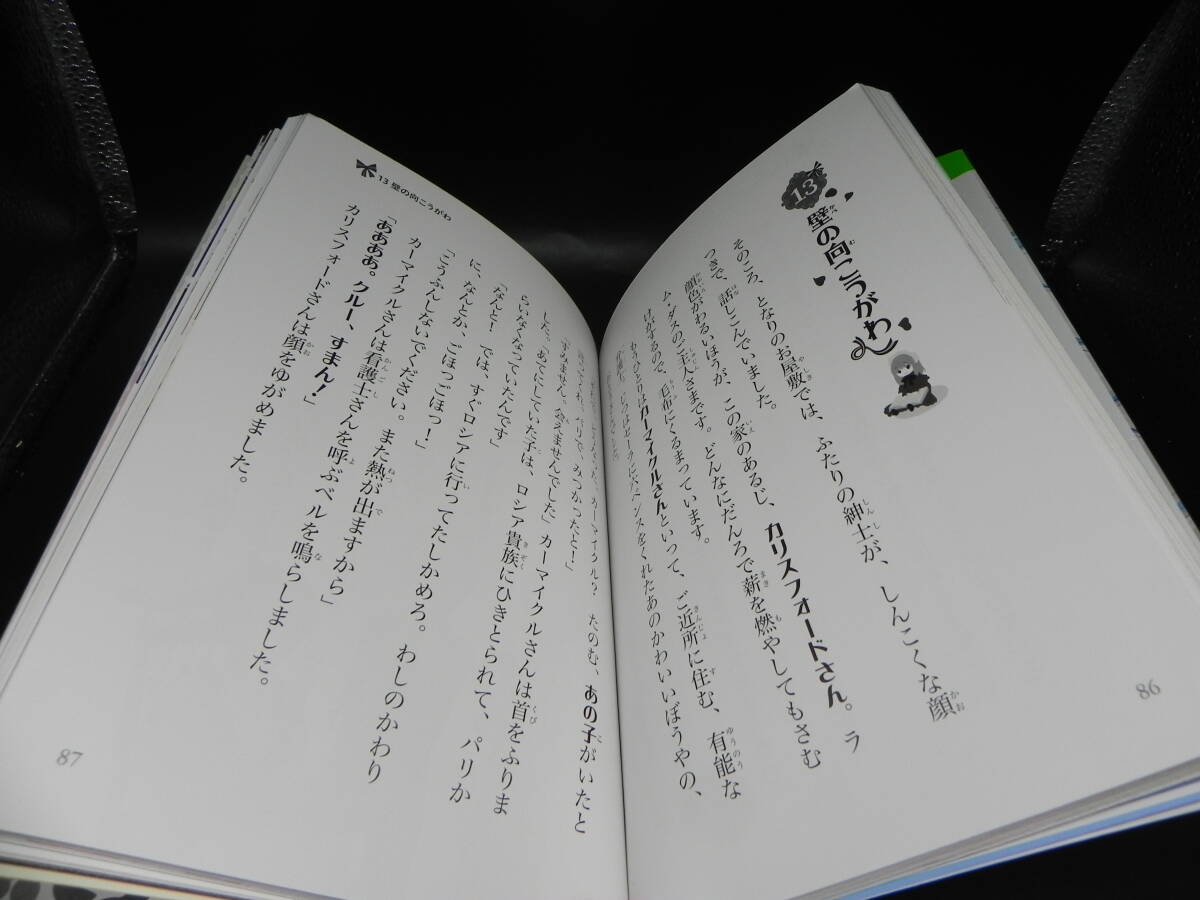 13
壁の向こうがわ
そのころ、となりのお屋敷では、ふたりの紳士が、しんこくな顔
つきで、話しこんでいました。
顔色がわるいほうが、この家のあるじ、カリスフォードさん。ラ
ム・ダスのご主人さまです。どんなにだんろで薪を燃やしてもさむ
けがするので、毛布にくるまっています。
もうひとりはカーマイクルさんといって、ご近所に住む、有能な
じつはセーラに六ペンスをくれたあのかわいいぼうやの、
86
13 壁の向こうがわ
カーマイクル? たのむ、あの子がいたと
みつかったと!」
「すみません。会えませんでした」カーマイクルさんは首をふりま
した。「あてにしていた子は、ロシア貴族にひきとられて、パリか
らいなくなっていたんです」
「なんと! では、すぐロシアに行ってたしかめろ。わしのかわり
に、なんとか、ごほっごほっ!」
「こうふんしないでください。また熱が出ますから」
カーマイクルさんは看護士さんを呼ぶベルを鳴らしました。
「ああああ。クルー、すまん!」
カリスフォードさんは顔をゆがめました。
87